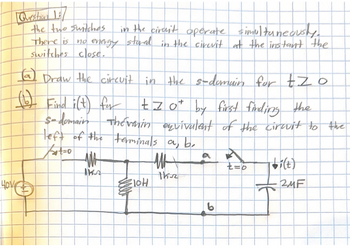 Question 1:/
the two switches in the circuit operate simultuneously.
There is no energy stored in the circuit at the instant the
switches close.
(a) Draw the circuit in the s-domain for t≥0
(b) Find i(t) for t≥0⁺ by first finding the
s-domain Thévenin equivalent of the circuit to the
left of the terminals a, b.
t=0
1kΩ
1kΩ
a
t=0
i(t)
40V
10H
2MF
b